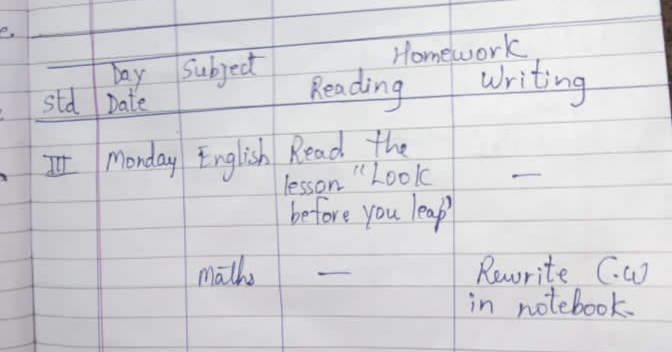 Homework
Day Subject
Std Date Reading Writing
III Monday English Read the
lesson "Look —
before you leap"
Maths — Rewrite C.W
in notebook.